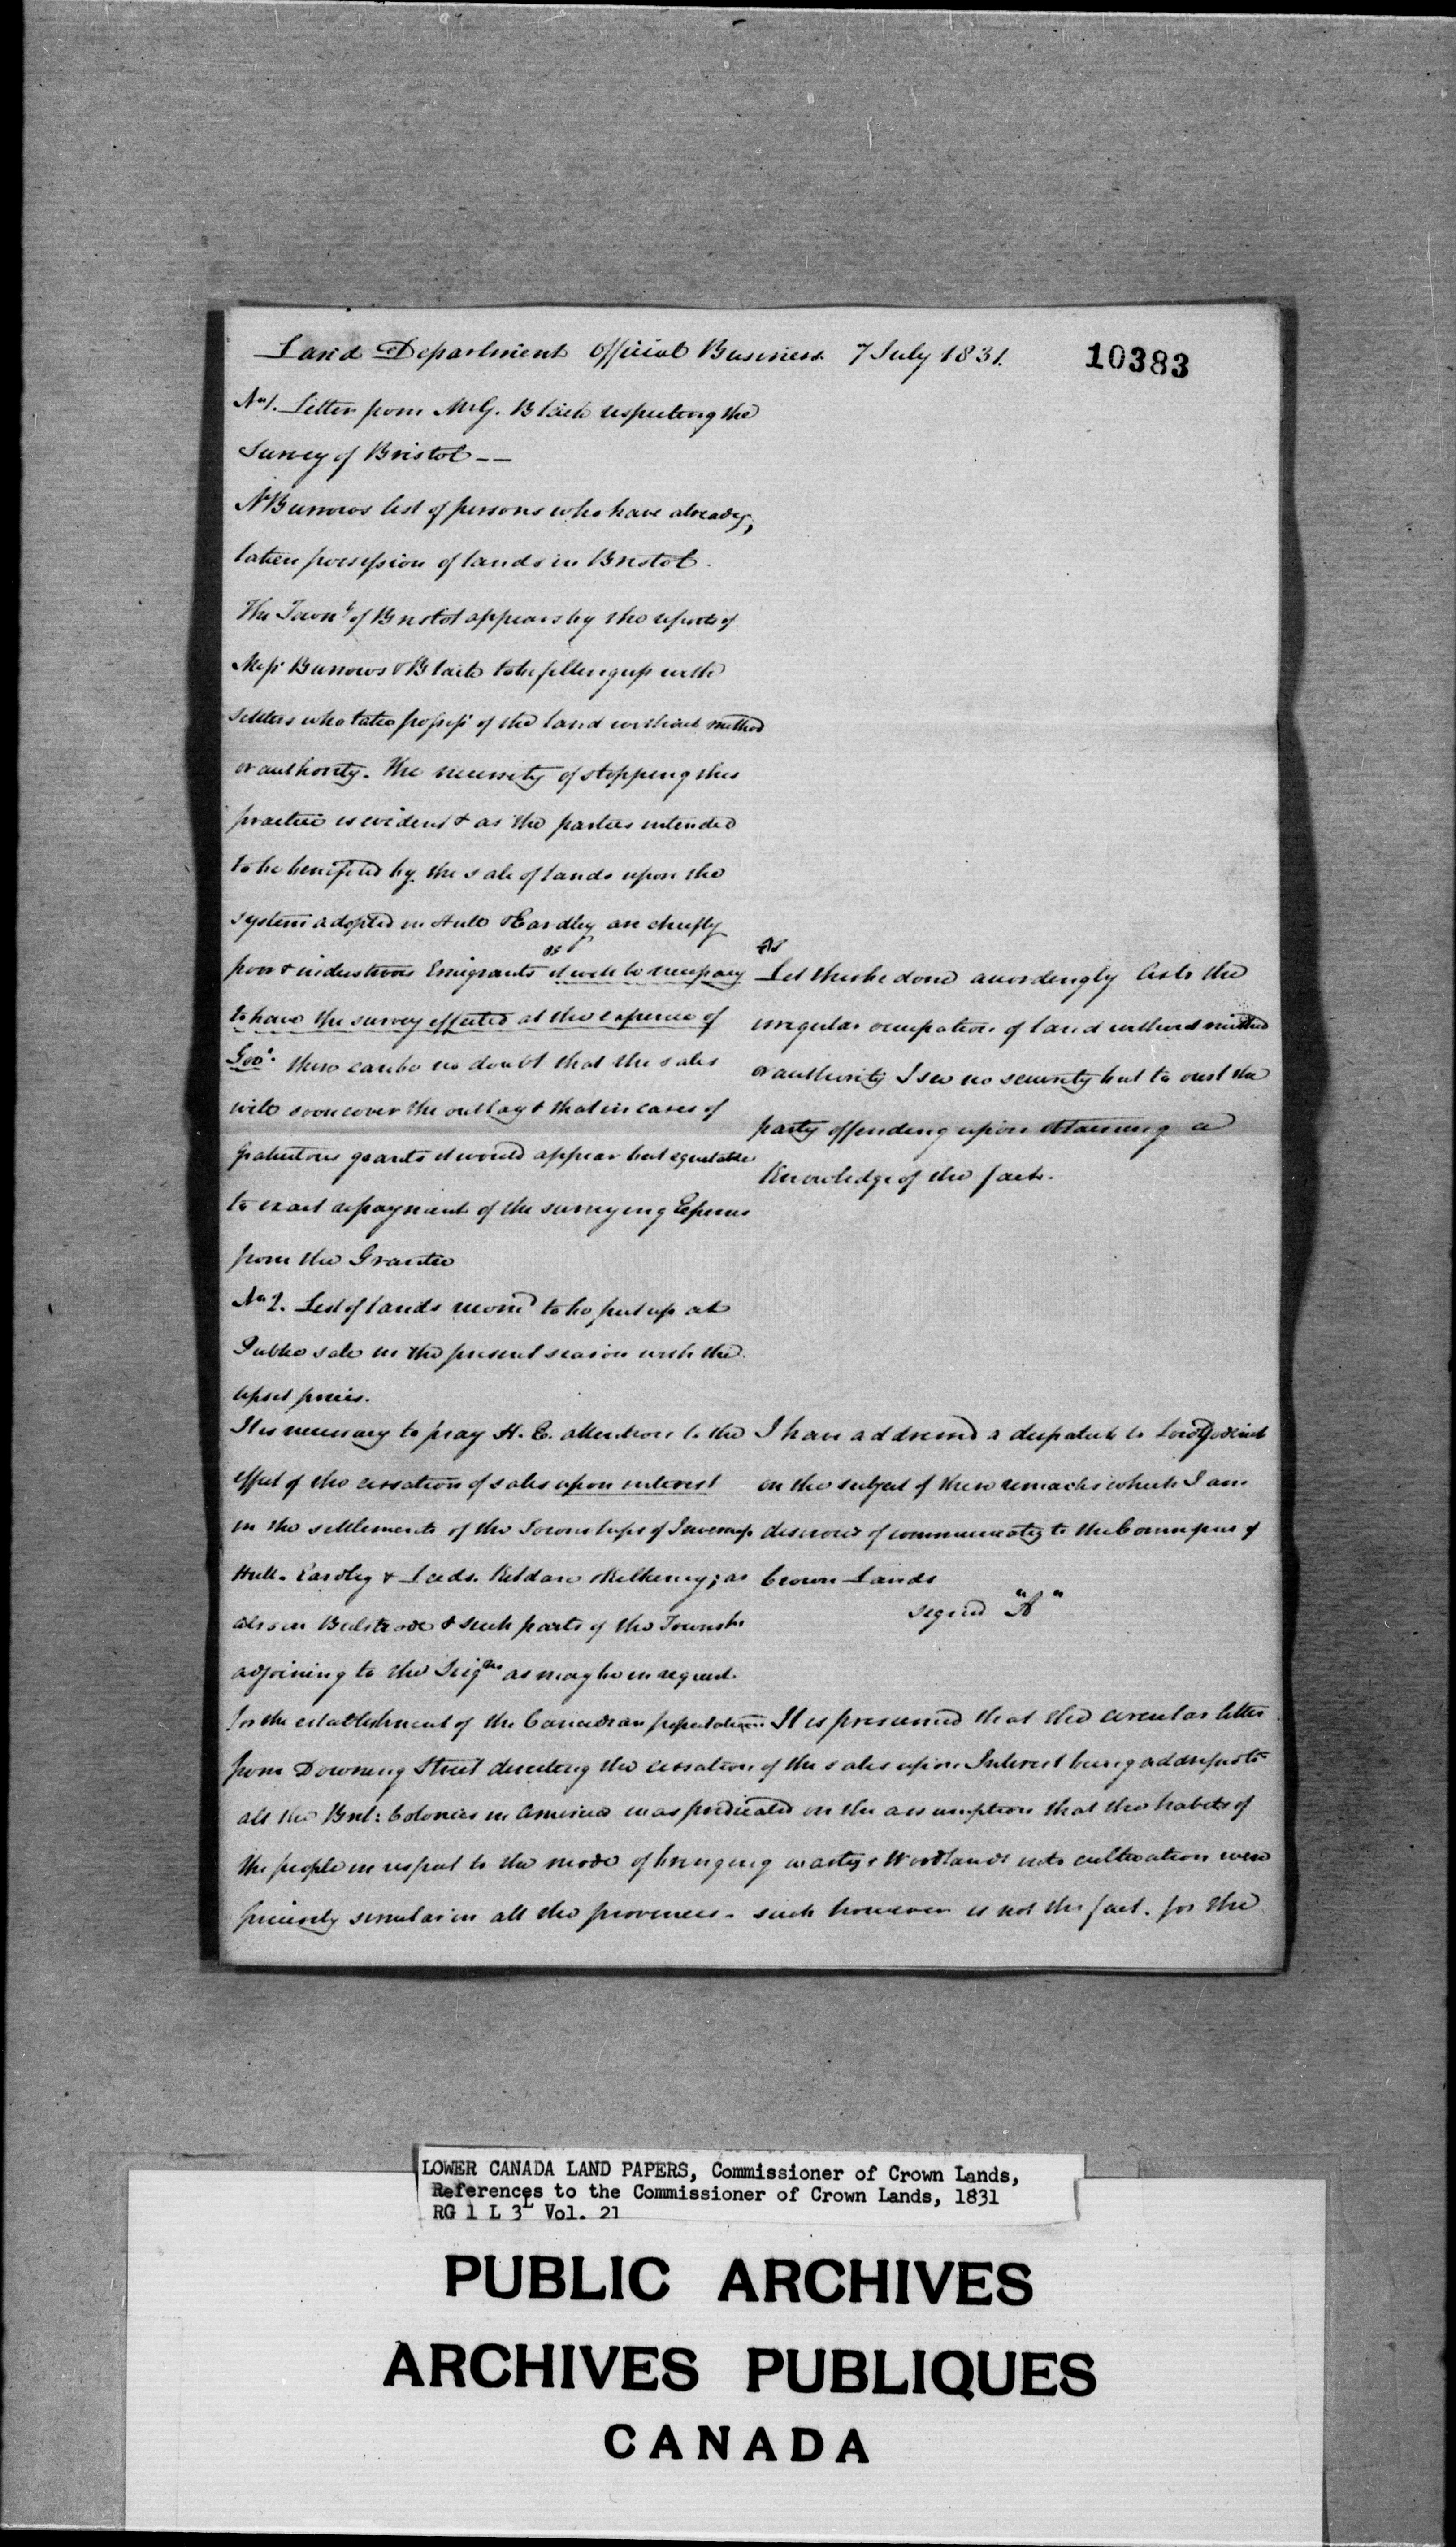 Land Department Official Business 7 July 1831.
10383
No 1. Letter from Mr G. Black respecting the
Survey of Bristol --
Mr Burrows list of persons who have already,
taken possession of lands in Bristol.
The Town.p of Bristol appears by the reports of
Messrs Burrows & Black to be filling up with
settlers who take possess.n of the land without method
or authority. The necessity of stopping this
practice is evident & as the parties intended
to be benefited by the sale of lands upon the
system adopted in Hull & Eardley are chiefly
poor & industrious Emigrants it will be necessary
to have the survey effected at the expence of
Gov.t there can be no doubt that the sales
will soon cover the outlay & that in cases of
gratuitous grants it would appear but equitable
to exact repayment of the surveying Expences
from the Grantee
Let this be done accordingly as to the
irregular occupation of land without method
or authority I see no security but to oust the
party offending upon obtaining a
Knowledge of the fact.
No 2. List of lands recom.d to be put up at
Public sale in the present season with the
upset prices.
It is necessary to pray H. E. attention to the
effect of the cessation of sales upon interest
in the settlements of the Townships of Inverness
Hull. Eardley & Leeds. Kildare & Kilkenny; as
also in Bulstrode & such parts of the Townsh.s
adjoining to the Seig.ies as may be in request
I have addressed a despatch to Lord Goderich
on the subject of these remarks which I am
desirous of communicat.g to the Commiss.r of
Crown Lands
signed "A"
for the establishment of the Canadian population. It is presumed that the circular letter
from Downing Street directing the cessation of the sales upon Interest being address.d to
all the Brit: Colonies in America was predicated on the assumption that the habits of
the people in respect to the mode of bringing waste & Woodlands into cultivation were
precisely similar in all the provinces - such however is not the fact. for the
LOWER CANADA LAND PAPERS, Commissioner of Crown Lands,
References to the Commissioner of Crown Lands, 1831
RG 1 L 3L Vol. 21
PUBLIC ARCHIVES
ARCHIVES PUBLIQUES
CANADA